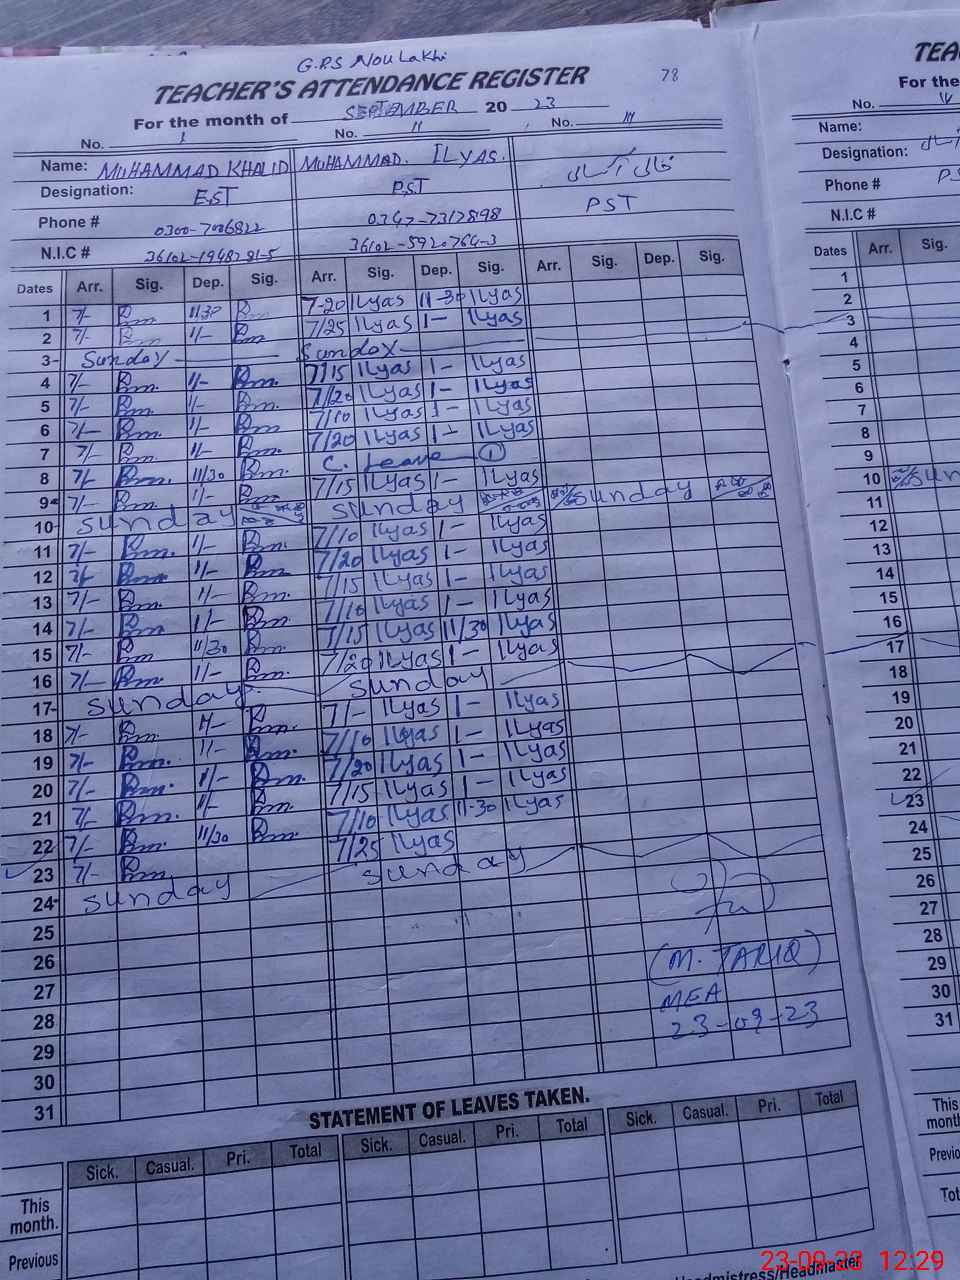 G.P.S NouLakhi
TEACHER'S ATTENDANCE REGISTER 78
For the month of SEPTEMBER 20 23
No. I No. II No. III
Name: MUHAMMAD KHALID MUHAMMAD. ILYAS. خالی آسامی
Designation: EST PST PST
Phone # 0300-7006822 0347-7317898
N.I.C # 36102-1948781-5 36102-5920764-3
Dates Arr. Sig. Dep. Sig. Arr. Sig. Dep. Sig. Arr. Sig. Dep. Sig.
1 7/- 11/30 7-20 Ilyas 11-30 Ilyas
2 7/- 1/- 7/25 Ilyas 1- Ilyas
3 Sunday Sunday
4 7/- 1/- 7/15 Ilyas 1- Ilyas
5 7/- 1/- 7/20 Ilyas 1- Ilyas
6 7/- 1/- 7/10 Ilyas 1- Ilyas
7 7/- 1/- 7/20 Ilyas 1- Ilyas
8 7/- 11/30 C. Leave 1
9 7/- 1/- 7/15 Ilyas 1- Ilyas
10 Sunday Sunday Sunday
11 7/- 1/- 7/10 Ilyas 1- Ilyas
12 7/- 1/- 7/20 Ilyas 1- Ilyas
13 7/- 1/- 7/15 Ilyas 1- Ilyas
14 7/- 1/- 7/10 Ilyas 1- Ilyas
15 7/- 11/30 7/15 Ilyas 11/30 Ilyas
16 7/- 1/- 7/20 Ilyas 1- Ilyas
17 Sunday. Sunday
18 7/- 1/- 7/- Ilyas 1- Ilyas
19 7/- 1/- 7/10 Ilyas 1- Ilyas
20 7/- 1/- 7/20 Ilyas 1- Ilyas
21 7/- 1/- 7/15 Ilyas 1- Ilyas
22 7/- 11/30 7/10 Ilyas 11-30 Ilyas
23 7/- 7/25 Ilyas
24 Sunday Sunday
25
26
27
28
29
30
31
(M. TARIQ)
MEA
23-09-23
STATEMENT OF LEAVES TAKEN.
Sick. Casual. Pri. Total Sick. Casual. Pri. Total Sick. Casual. Pri. Total
This month.
Previous
TEA
For the
No. IV
Name:
Designation:
Phone # PS
N.I.C #
Dates Arr. Sig.
1
2
3
4
5
6
7
8
9
10 Sun
11
12
13
14
15
16
17
18
19
20
21
22
23
24
25
26
27
28
29
30
31
This
month
Previo
Tot
dmistress/Headmaster
23-09-23 12:29